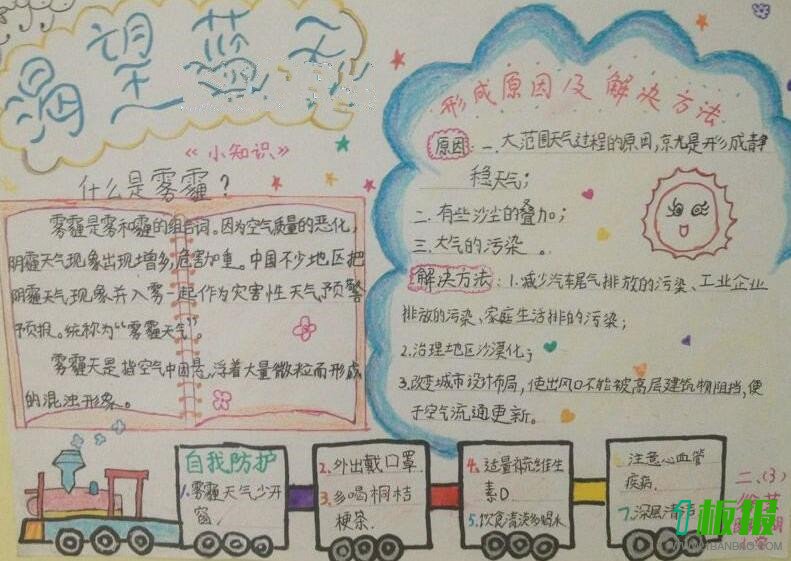 渴望蓝天
《小知识》
什么是雾霾？
雾霾是雾和霾的组合词。因为空气质量的恶化，
阴霾天气现象出现增多，危害加重。中国不少地区把
阴霾天气现象并入雾一起作为灾害性天气预警
预报。统称为“雾霾天气”。
雾霾天是指空气中因悬浮着大量微粒而形成
的混浊形象。
形成原因及解决方法
原因：一、大范围天气过程的原因，尤是形成静
稳天气；
二、有些沙尘的叠加；
三、大气的污染。
解决方法：1.减少汽车尾气排放的污染、工业企业
排放的污染、家庭生活排的污染；
2.治理地区沙漠化；
3.改变城市设计布局，使出风口不能被高层建筑物阻挡，便
于空气流通更新。
自我防护
1.雾霾天气少开
窗.
2.外出戴口罩.
3.多喝桐桔
梗茶.
4.适量补充维生
素D.
5.饮食清淡多喝水
注意心血管
疾病.
7.深层清
二、(3)
板报
WWW.1BANBAO.COM